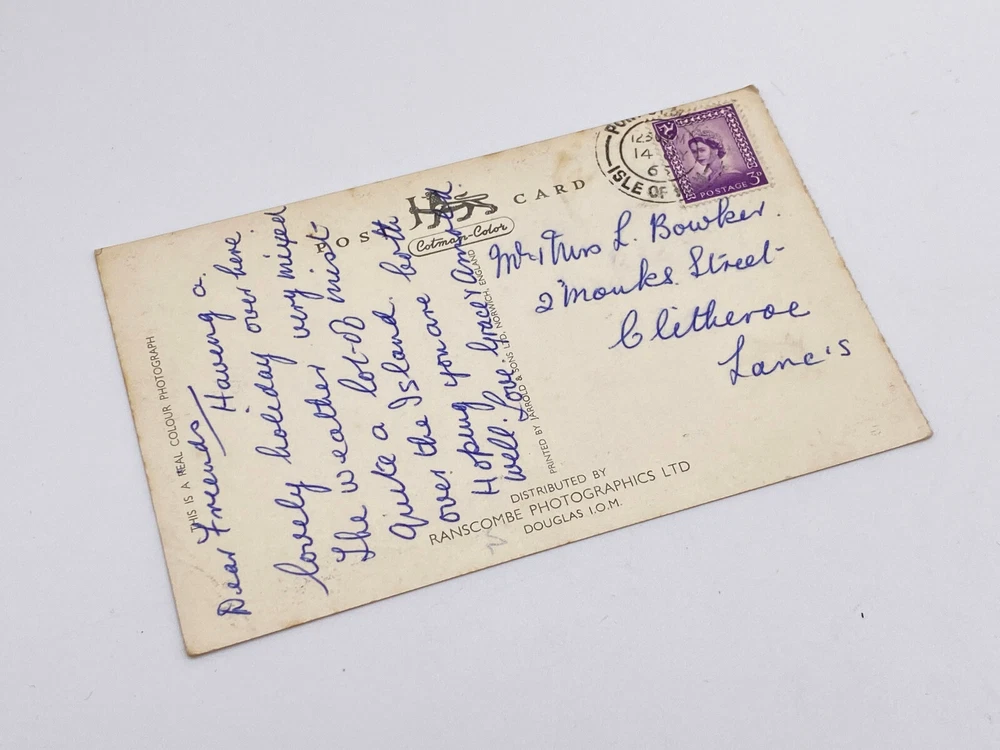 THIS IS A REAL COLOUR PHOTOGRAPH
POST CARD
Cotman-Color
Dear Friends Having a
lovely holiday over here.
The weather very mixed
Quite a lot of mist
over the Island. both
Hoping you are
well. Love. Grace & Arnold.
PRINTED BY JARROLD & SONS LTD, NORWICH, ENGLAND
DISTRIBUTED BY
RANSCOMBE PHOTOGRAPHICS LTD
DOUGLAS I.O.M.
POR
1230
14
6
ISLE OF
POSTAGE 3D
Mr & Mrs L. Bowker.
2 Monks. Street
Clitheroe
Lanc's